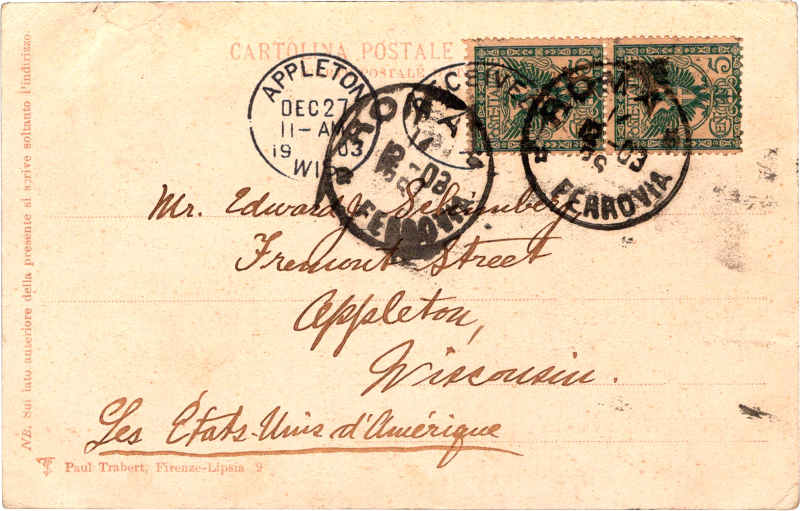 CARTOLINA POSTALE
APPLETON
DEC 27
11-AM
1903
WIS
RECEIVED
ROMA
12-03
FERROVIA
ROMA
12-03
FERROVIA
5
Mr. Edward
Fremont Street
Appleton,
Wisconsin.
Les États-Unis d'Amérique
NB. Sul lato anteriore della presente si scrive soltanto l'indirizzo.
Paul Trabert, Firenze-Lipsia 9